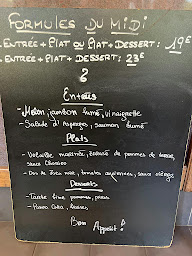 FORMULES DU MIDI
- ENTRÉE + PLAT OU PLAT + DESSERT : 19€
- ENTRÉE + PLAT + DESSERT : 23€
Entrées
- Melon, jambon fumé, vinaigrette
- Salade d'Asperges, saumon fumé
Plats
- Volaille marinée, de pommes de terre,
sauce Chorizo
- Dos de, tomates, sauce
Desserts
- Tarte fine pommes,
- Panna Cotta, fraises
Bon Appétit !